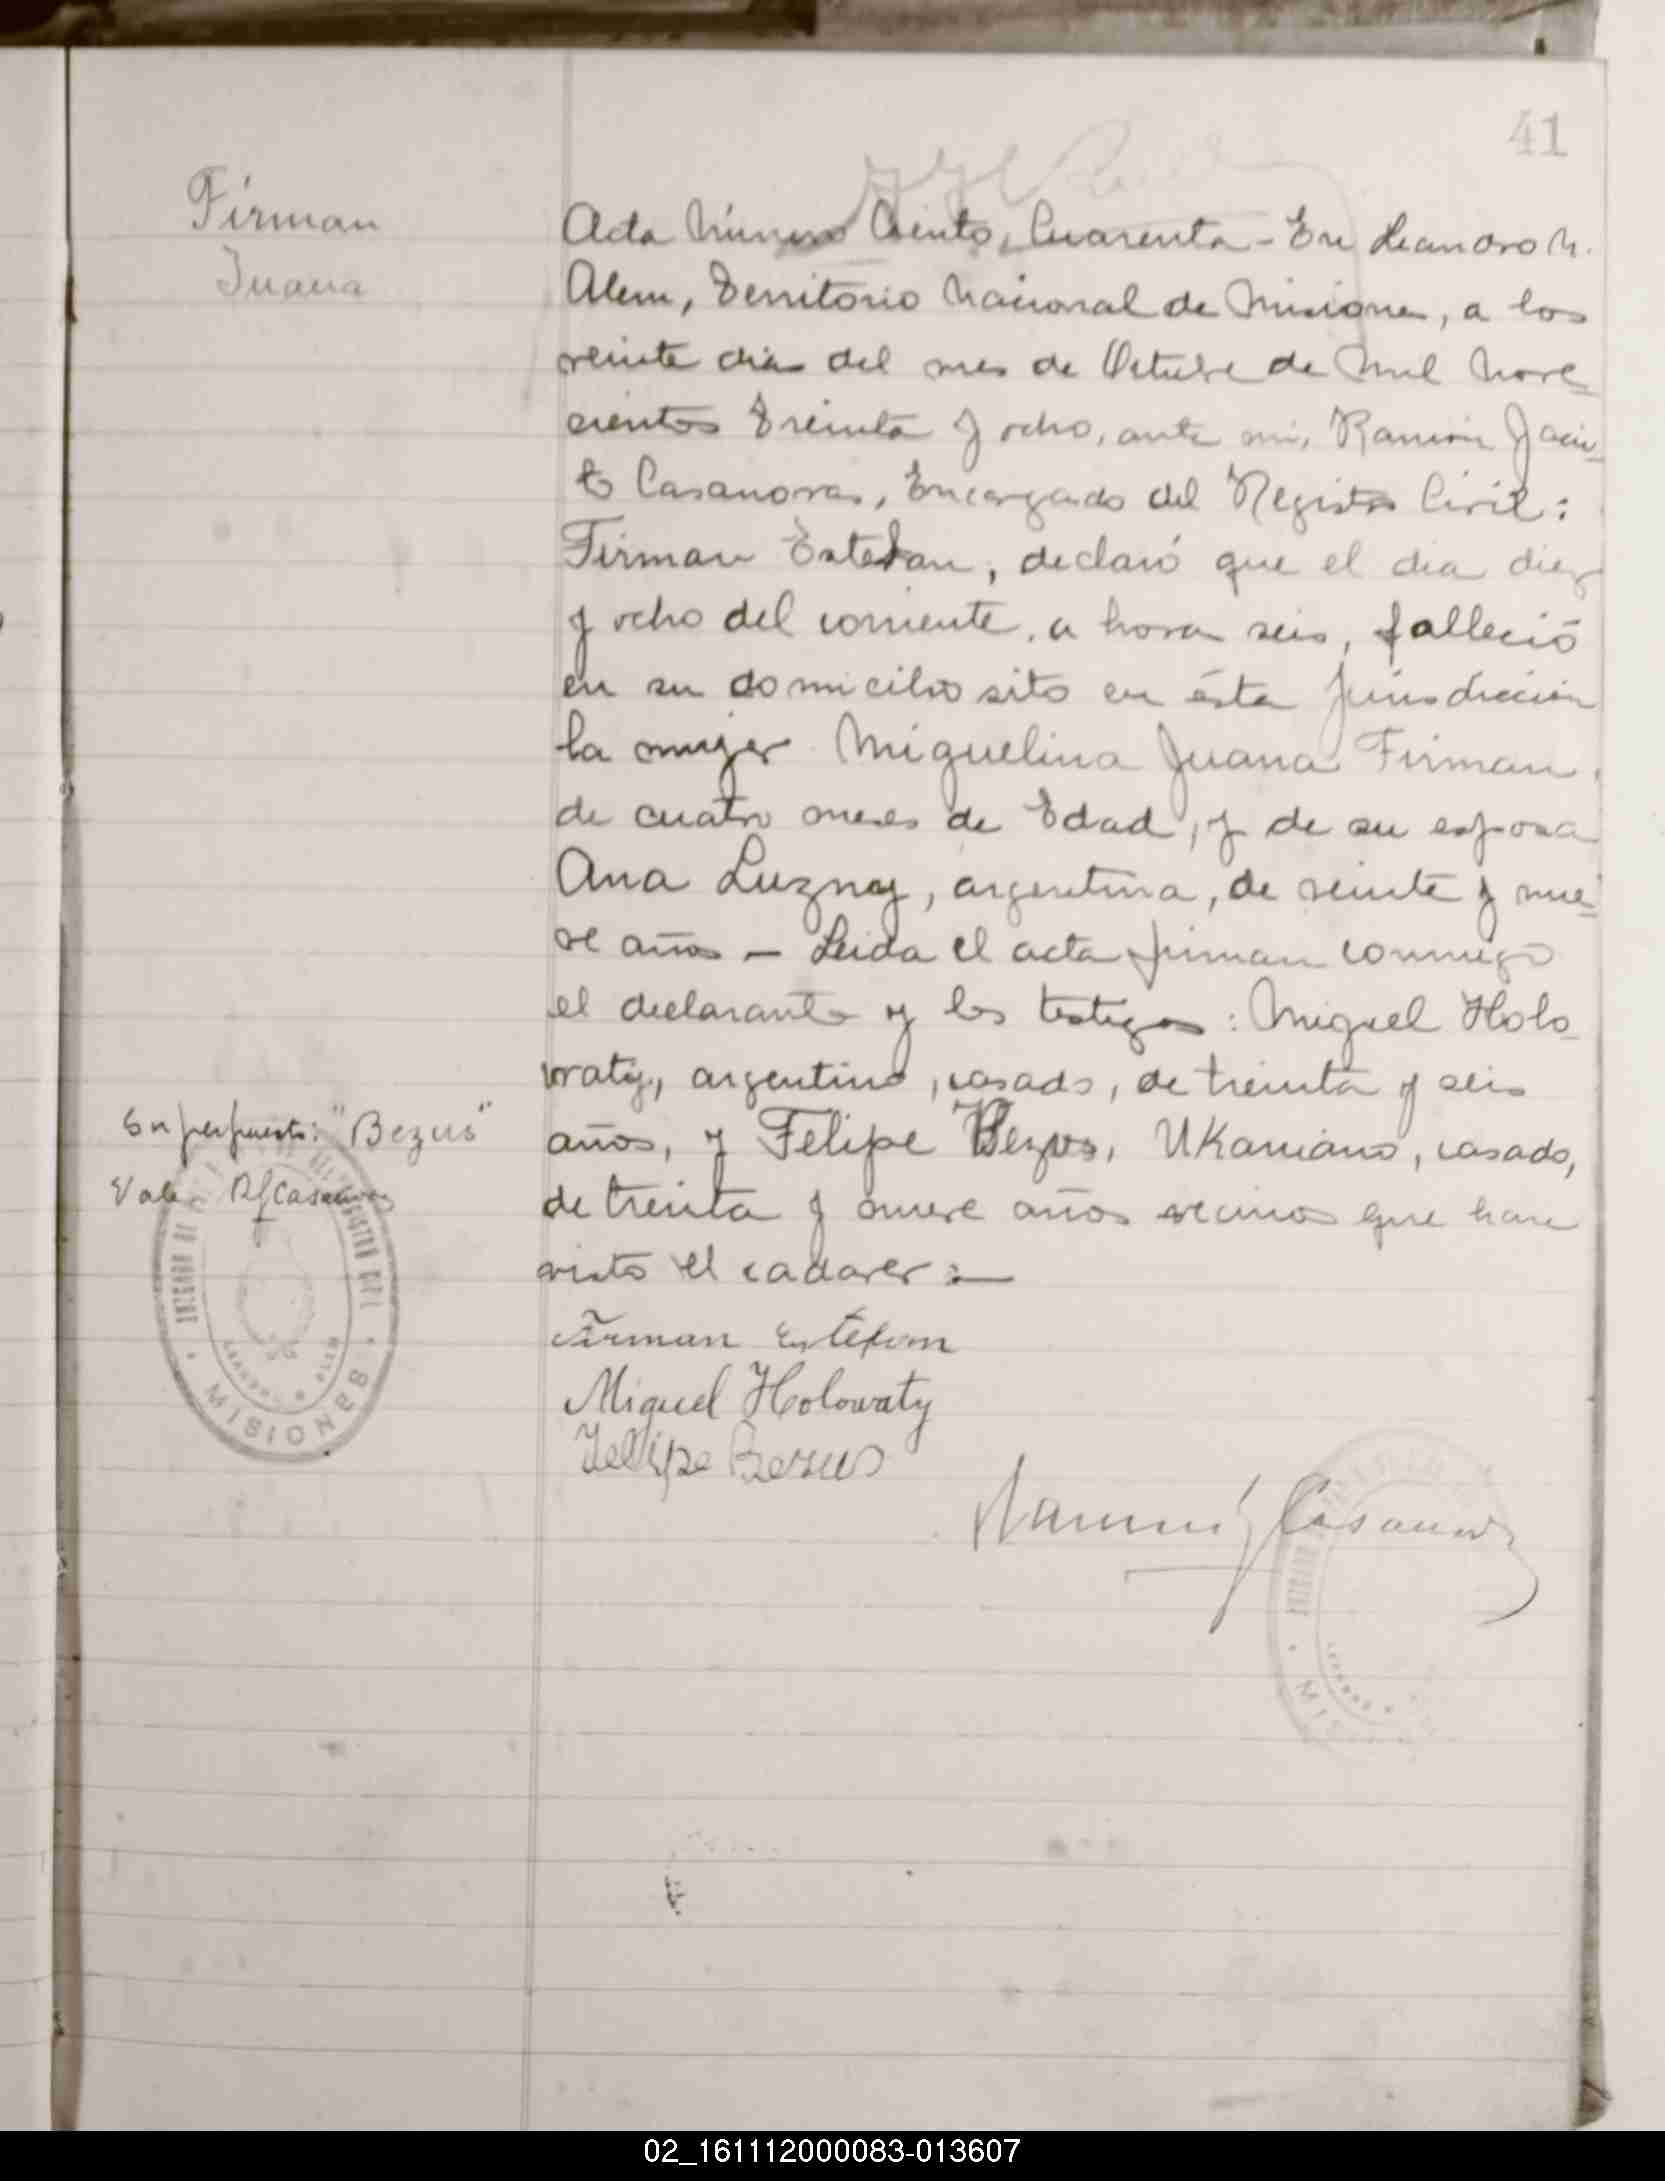 41
Firman
Juana
Acta Número Ciento, Cuarenta - En Leandro N.
Alem, Territorio Nacional de Misiones, a los
veinte dias del mes de Octubre de Mil Nove-
cientos Treinta y ocho, ante mi, Ramón Jacin-
to Casanovas, Encargado del Registro Civil:
Firman Esteban, declaró que el dia diez
y ocho del corriente, a hora seis, falleció
en su domicilio sito en ésta Jurisdicción
la mujer Miguelina Juana Firman,
de cuatro meses de Edad, y de su esposa
Ana Luzny, argentina, de veinte y nue-
ve años - Leida el acta firman conmigo
el declarante y los testigos: Miguel Holo-
waty, argentino, casado, de treinta y seis
años, y Felipe Bezus, Ukaniano, casado,
de treinta y nueve años vecinos que han
visto el cadaver :—
Superpuesto: "Bezus"
Vale. RJCasanovas
MISIONES
Firman Estefan
Miguel Holowaty
Felipe Bezus
Ramón J Casanovas
MIS
02_161112000083-013607